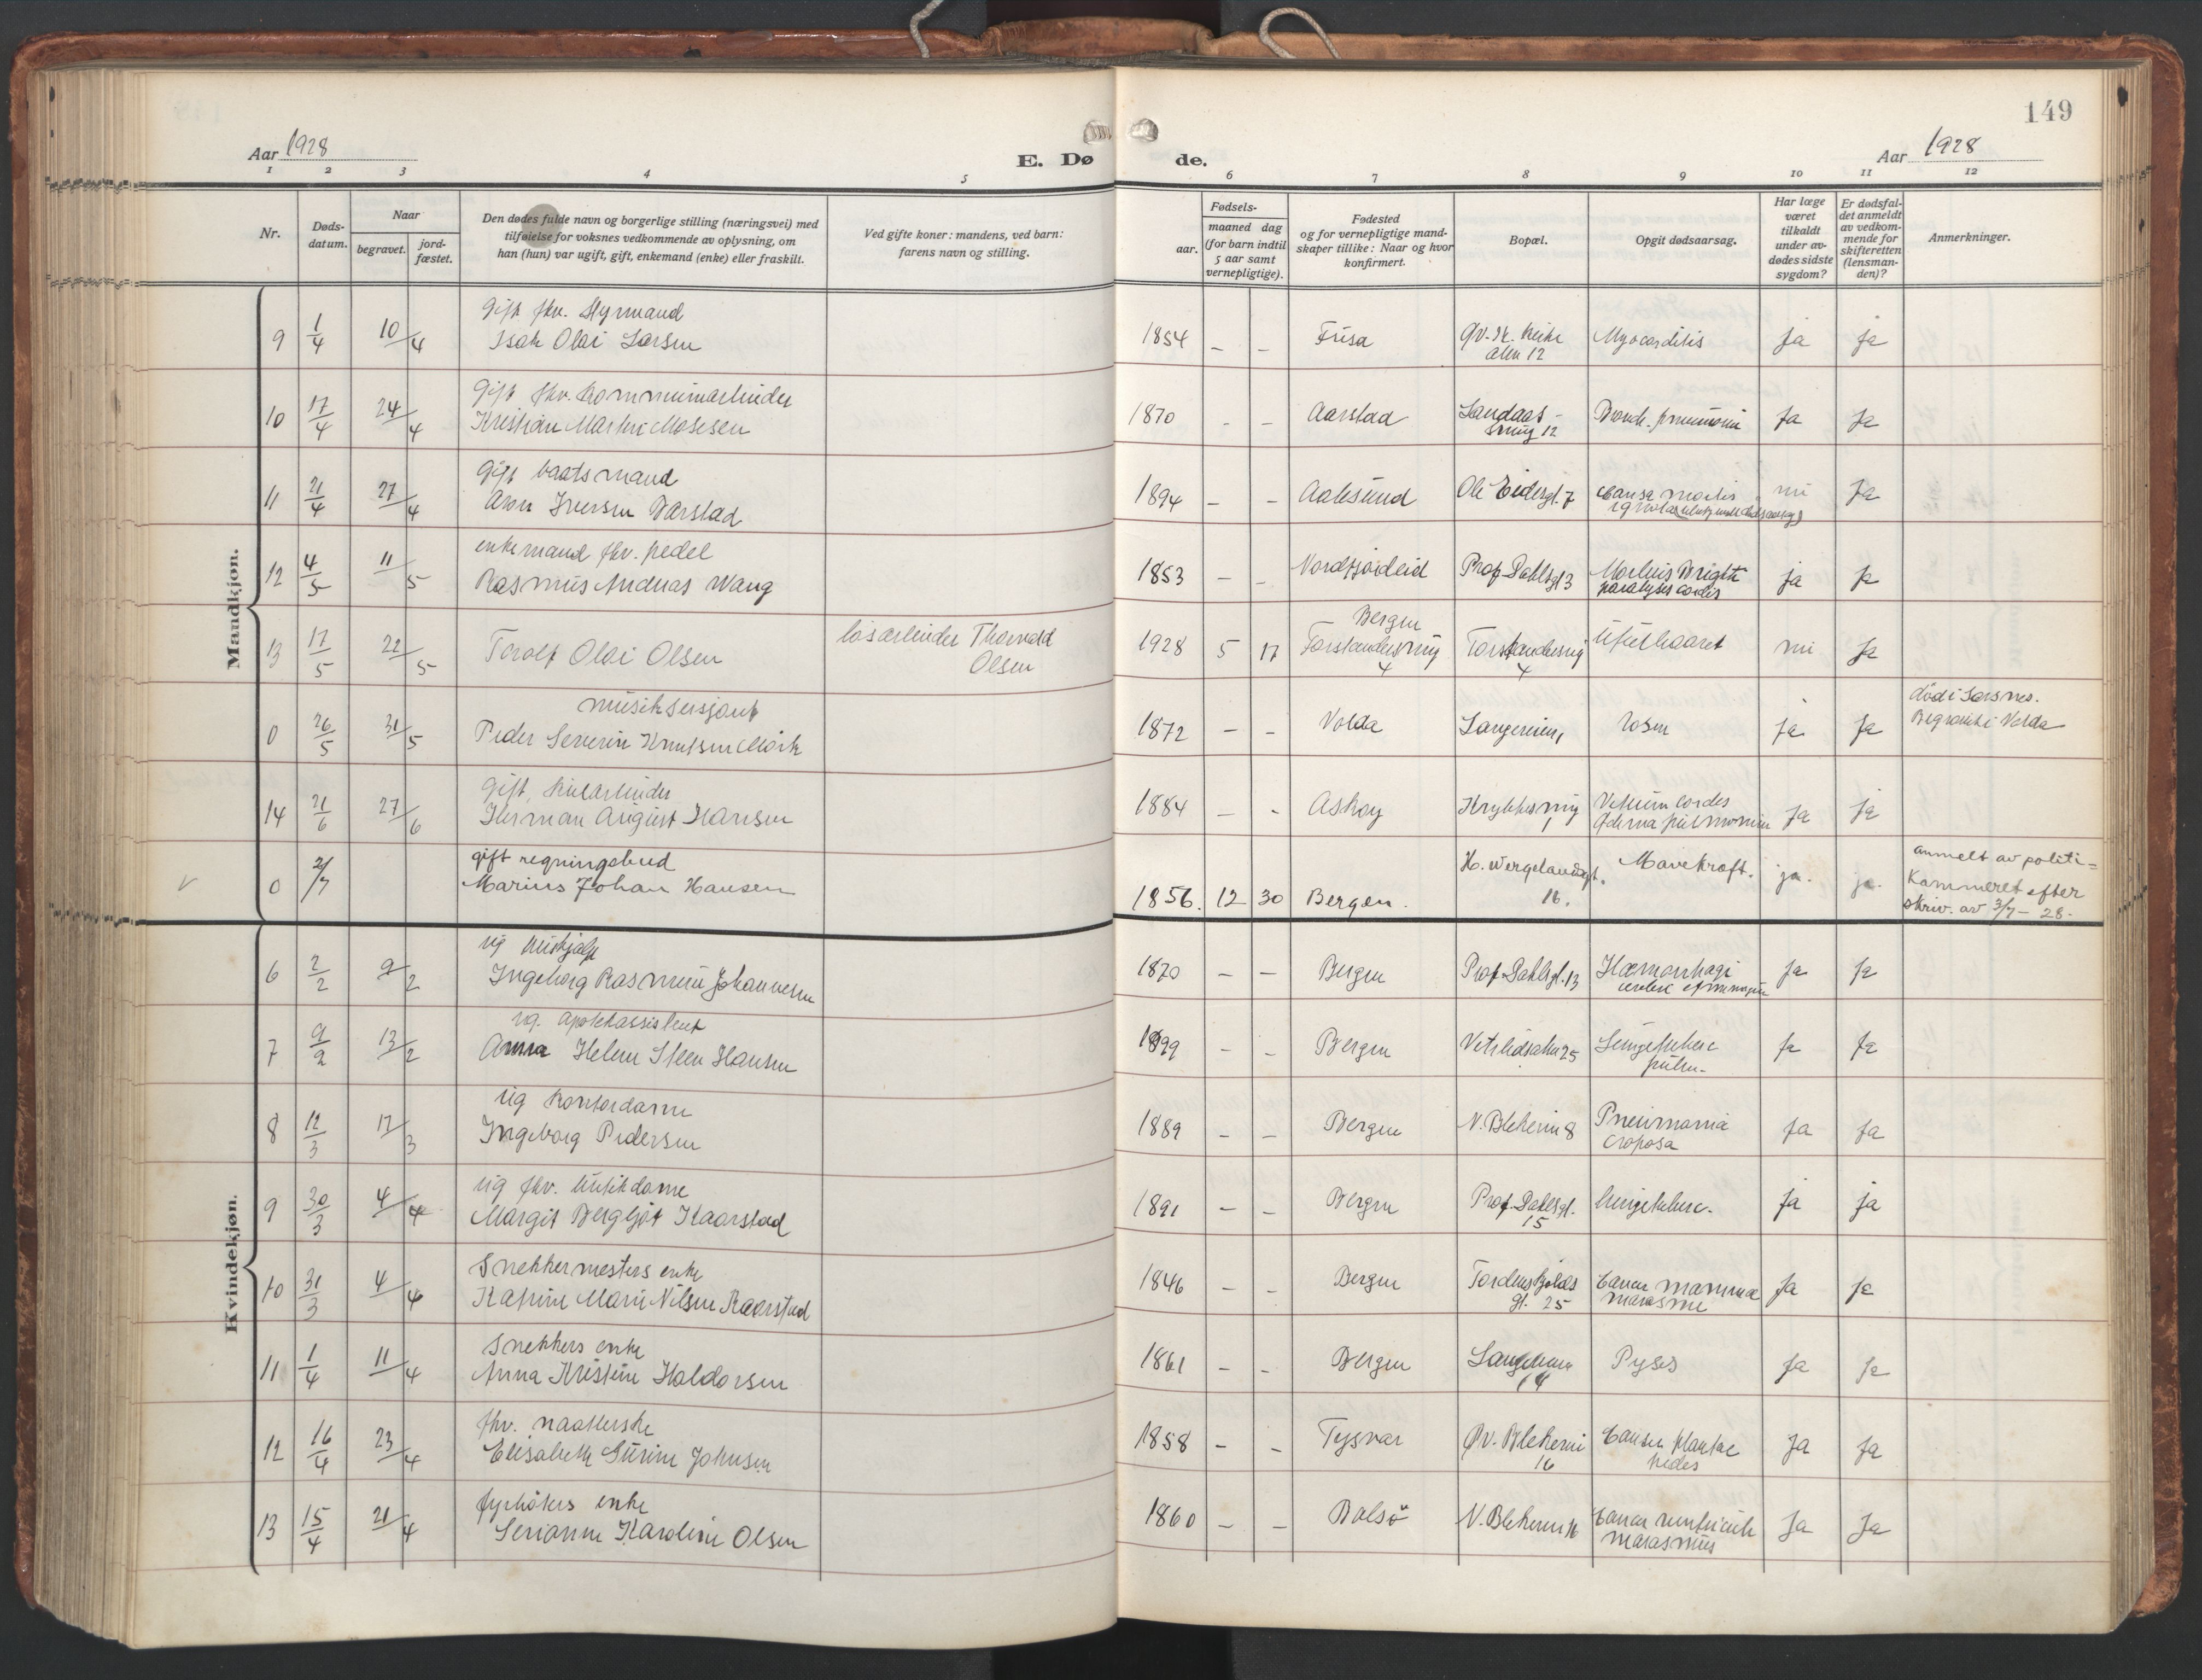 149
Aar 1928
E. Dø
de.
Aar 1928
1 2 3 4 5 6 7 8 9 10 11 12
Nr.
Døds-
datum.
Naar
begravet.
jord-
fæstet.
Den dødes fulde navn og borgerlige stilling (næringsvei) med
tilføielse for voksnes vedkommende av oplysning, om
han (hun) var ugift, gift, enkemand (enke) eller fraskilt.
Ved gifte koner: mandens, ved barn:
farens navn og stilling.
Fødsels-
aar.
maaned dag
(for barn indtil
5 aar samt
vernepligtige).
Fødested
og for vernepligtige mand-
skaper tillike: Naar og hvor
konfirmert.
Bopæl.
Opgit dødsaarsag.
Har læge
været
tilkaldt
under av-
dødes sidste
sygdom?
Er dødsfal-
det anmeldt
av vedkom-
mende for
skifteretten
(lensman-
den)?
Anmerkninger.
Mandkjøn.
gift fhv. Styrmand
9 1/4 10/4 Isak Olai Larsen 1854 – – Fusa Myocarditis ja ja
alm 12
Gift fhv.
10 17/4 24/4 Kristian Martin Mosesen 1870 - - Aarstad Landaas- pneumoni Ja Ja
12
Gift baatsmand
11 21/4 27/4 Iversen 1894 – - Aalesund Ole Eidesgt. 7 causa mortis ni Ja
enkemand fhv. pedel
12 4/5 11/5 Rasmus Andreas Wang 1853 – - Nordfjordeid Prof Dahlsgt 3 Morbus Brightii ja Ja
paralyses cordis
løsarbeider Thorvald Bergen
13 17/5 22/5 Torolf Olai Olsen Olsen 1928 5 17 4 4 Ufuldbaaret ni Ja
musiksersjant død i
0 26/5 31/5 Peder Severin Knutsen Mork 1872 – - Volda Rosen ja Ja Begravet i Volda
gift,
14 21/6 27/6 Herman August Hansen 1884 – - Askøy 1 Vitium cordis Ja ja
gift regningsbud
V 0 2/7 Marius Johan Hansen 1856. 12 30 Bergen. H. Wergelandsgt. 16. Mavekræft. ja. ja. anmelt av politi-
Kammeret efter
skriv. av 3/7 – 28.
Kvindekjøn.
ug hushjelp
6 2/2 9/2 Ingeborg Rasmine Johannesen 1870 – – Bergen Prof Dahlsgt. 13 Hæmorrhagi Ja Ja
ug. apotekassistent
7 9/2 13/2 Anna Helene Steen Hansen 1899 - - Bergen Vetrlidsalm 25 Lungetuberc Ja Ja
pulm.
ug kontordame
8 12/3 17/3 Ingeborg Pedersen 1889 – – Bergen N. Blekevei 8 Pneumonia Ja Ja
croposa
ug fhv. butikdame
9 30/3 4/4 Margit Bergljot Kaarstad 1891 – – Bergen Prof. Dahlsgt. 15 lungetuberc. ja ja
Snekkermesters enke
10 31/3 4/4 Katrine Marie Nilsen Kaarstad 1846 – – Bergen Tordenskjolds Cancer mamma Ja Ja
gt. 25 marasme
Snekkers enke
11 1/4 11/4 Anna Kristine Haldorsen 1861 – - Bergen 14 Ja Ja
fhv.
12 16/4 23/4 Elisabeth Gurine Johnsen 1858 – - Tysvær Øv. Blekevei 16 Cancer plantae Ja Ja
pedis
fyrbøters enke
13 15/4 21/4 Serianne Karoline Olsen 1860 – – Balsö N. Blekevei 16 Cancer ventriculi Ja Ja
marasmus